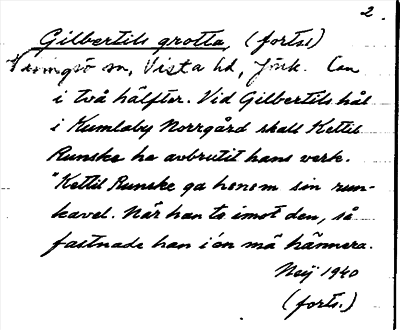 2.
Gilbertils grotta, (forts)
Visingsö sn, Vista hd, Jönk. län
i två hälfter. Vid Gilbertils hål
i Kumlaby Norrgård skall Kettil
Runske ha avbrutit hans verk.
"Kettil Runske ga honom sin run-
kavel. När han to imot den, så
fastnade han i'en mä hännera.
1940
(forts.)